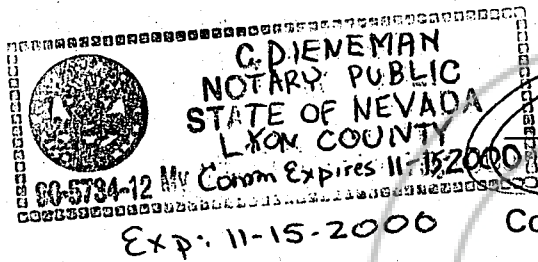 C. DIENEMAN
NOTARY PUBLIC
STATE OF NEVADA
LYON COUNTY
90-5734-12 My Comm Expires 11-15-2000
Exp: 11-15-2000
Co